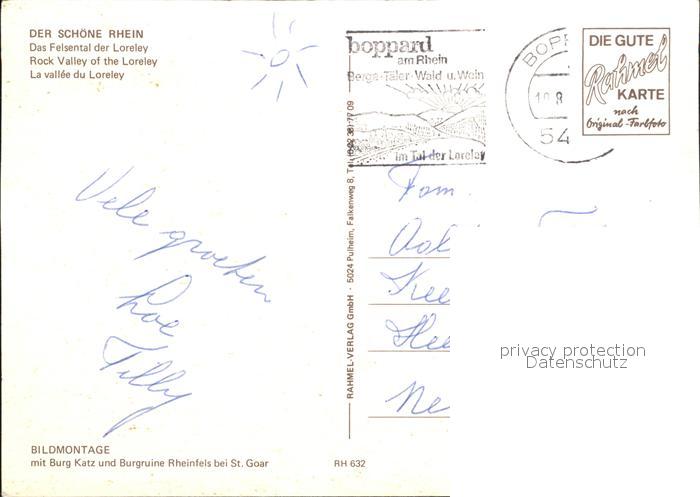 DER SCHÖNE RHEIN
Das Felsental der Loreley
Rock Valley of the Loreley
La vallée du Loreley
boppard
am Rhein
Berge-Täler-Wald u. Wein
im Tal der Loreley
BOPP
54
DIE GUTE
Rahmel
KARTE
nach
Original-Farbfoto
Vele groeten
Tilly
Fam.
RAHMEL-VERLAG GmbH · 5024 Pulheim, Falkenweg 8,
privacy protection
Datenschutz
BILDMONTAGE
mit Burg Katz und Burgruine Rheinfels bei St. Goar
RH 632